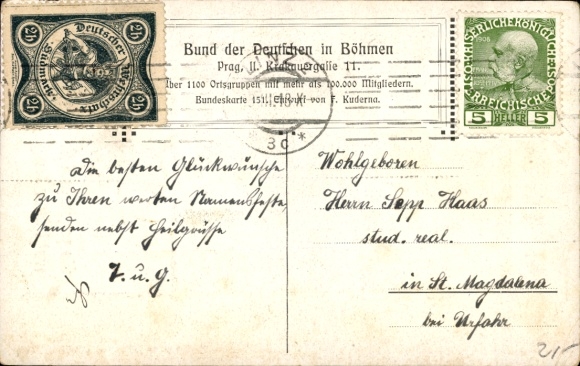 Bund der Deutschen in Böhmen
Prag, II. Krakauergasse 11.
Über 1100 Ortsgruppen mit mehr als 100.000 Mitgliedern.
Bundeskarte 151. Entwurf von F. Kuderna.
Deutscher
25 25
25 25
1908
KAISERLICHE KÖNIGLICHE
ÖSTERREICHISCHE POST
5 HELLER 5
3c *
Die besten Glückwünsche
zu Ihren werten Namensfeste,
senden nebst Heilgrüsse
J. u. G.
Wohlgeboren
Herrn Sepp Haas
stud. real.
in St. Magdalena
bei Urfahr